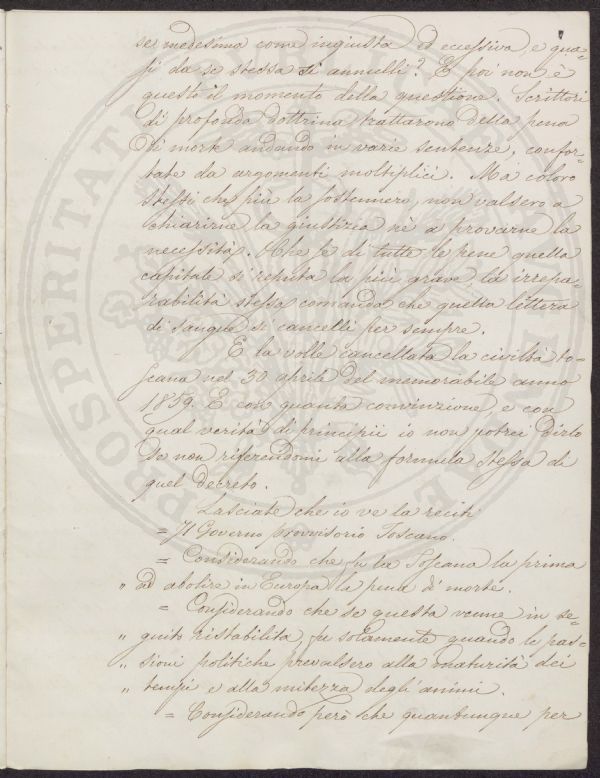 se medesima come ingiusta ed eccessiva, e qua=
si da se stessa si annulli? E poi non è
questo il momento della questione. Scrittori
di profonda dottrina trattarono della pena
di morte andando in varie sentenze, confor=
tate da argomenti moltiplici. Ma coloro
stessi che più la sostennero, non valsero a
chiarirne la giustizia nè a provarne la
necessità. Che se di tutte le pene quella
capitale si reputa la più grave la irrepa=
rabilità stessa comanda che questa lettera
di sangue si cancelli per sempre.
E la volle cancellata la civiltà to=
scana nel 30 aprile del memorabile anno
1859. E con quanta convinzione, e con
qual verità di principii io non potrei dirlo
se non riferendomi alla formula stessa di
quel decreto.
Lasciate che io ve la reciti
= Il Governo provvisorio Toscano.
= Considerando che fu la Toscana la prima
" ad abolire in Europa la pena di morte.
= Considerando che se questa venne in se=
" guito ristabilita, fu solamente quando le pas=
" sioni politiche prevalsero alla maturità dei
" tempi e alla mitezza degli animi.
= Considerando però che quantunque per
PROSPERITA